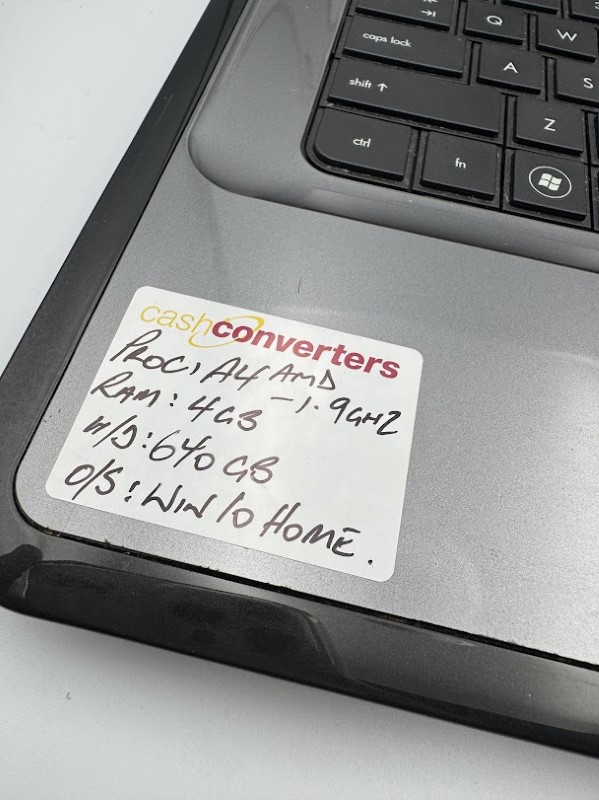 Q W
caps lock A S
shift ↑ Z
ctrl fn
cashconverters
PROC, A4 AMD
-1.9GHZ
RAM: 4GB
H/D: 640 GB
O/S: WIN 10 HOME.